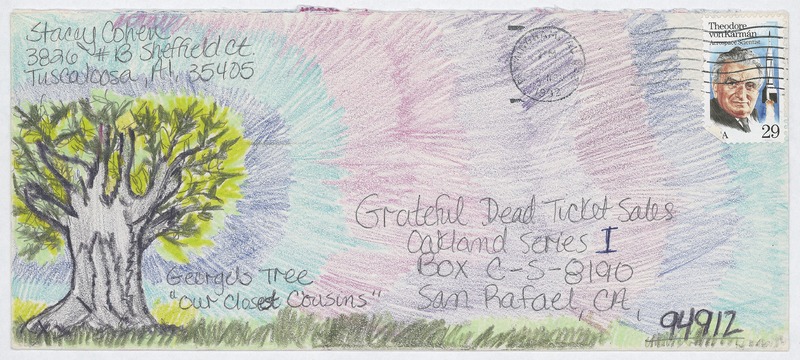 Stacey Cohen
3826 #B Sheffield Ct
Tuscaloosa, Al. 35405
Theodore
von Kármán
Aerospace Scientist
USA
29
1992
Grateful Dead Ticket Sales
Oakland Series I
Box C-S-8190
San Rafael, CA,
94912
George's Tree
"Our Closest Cousins"